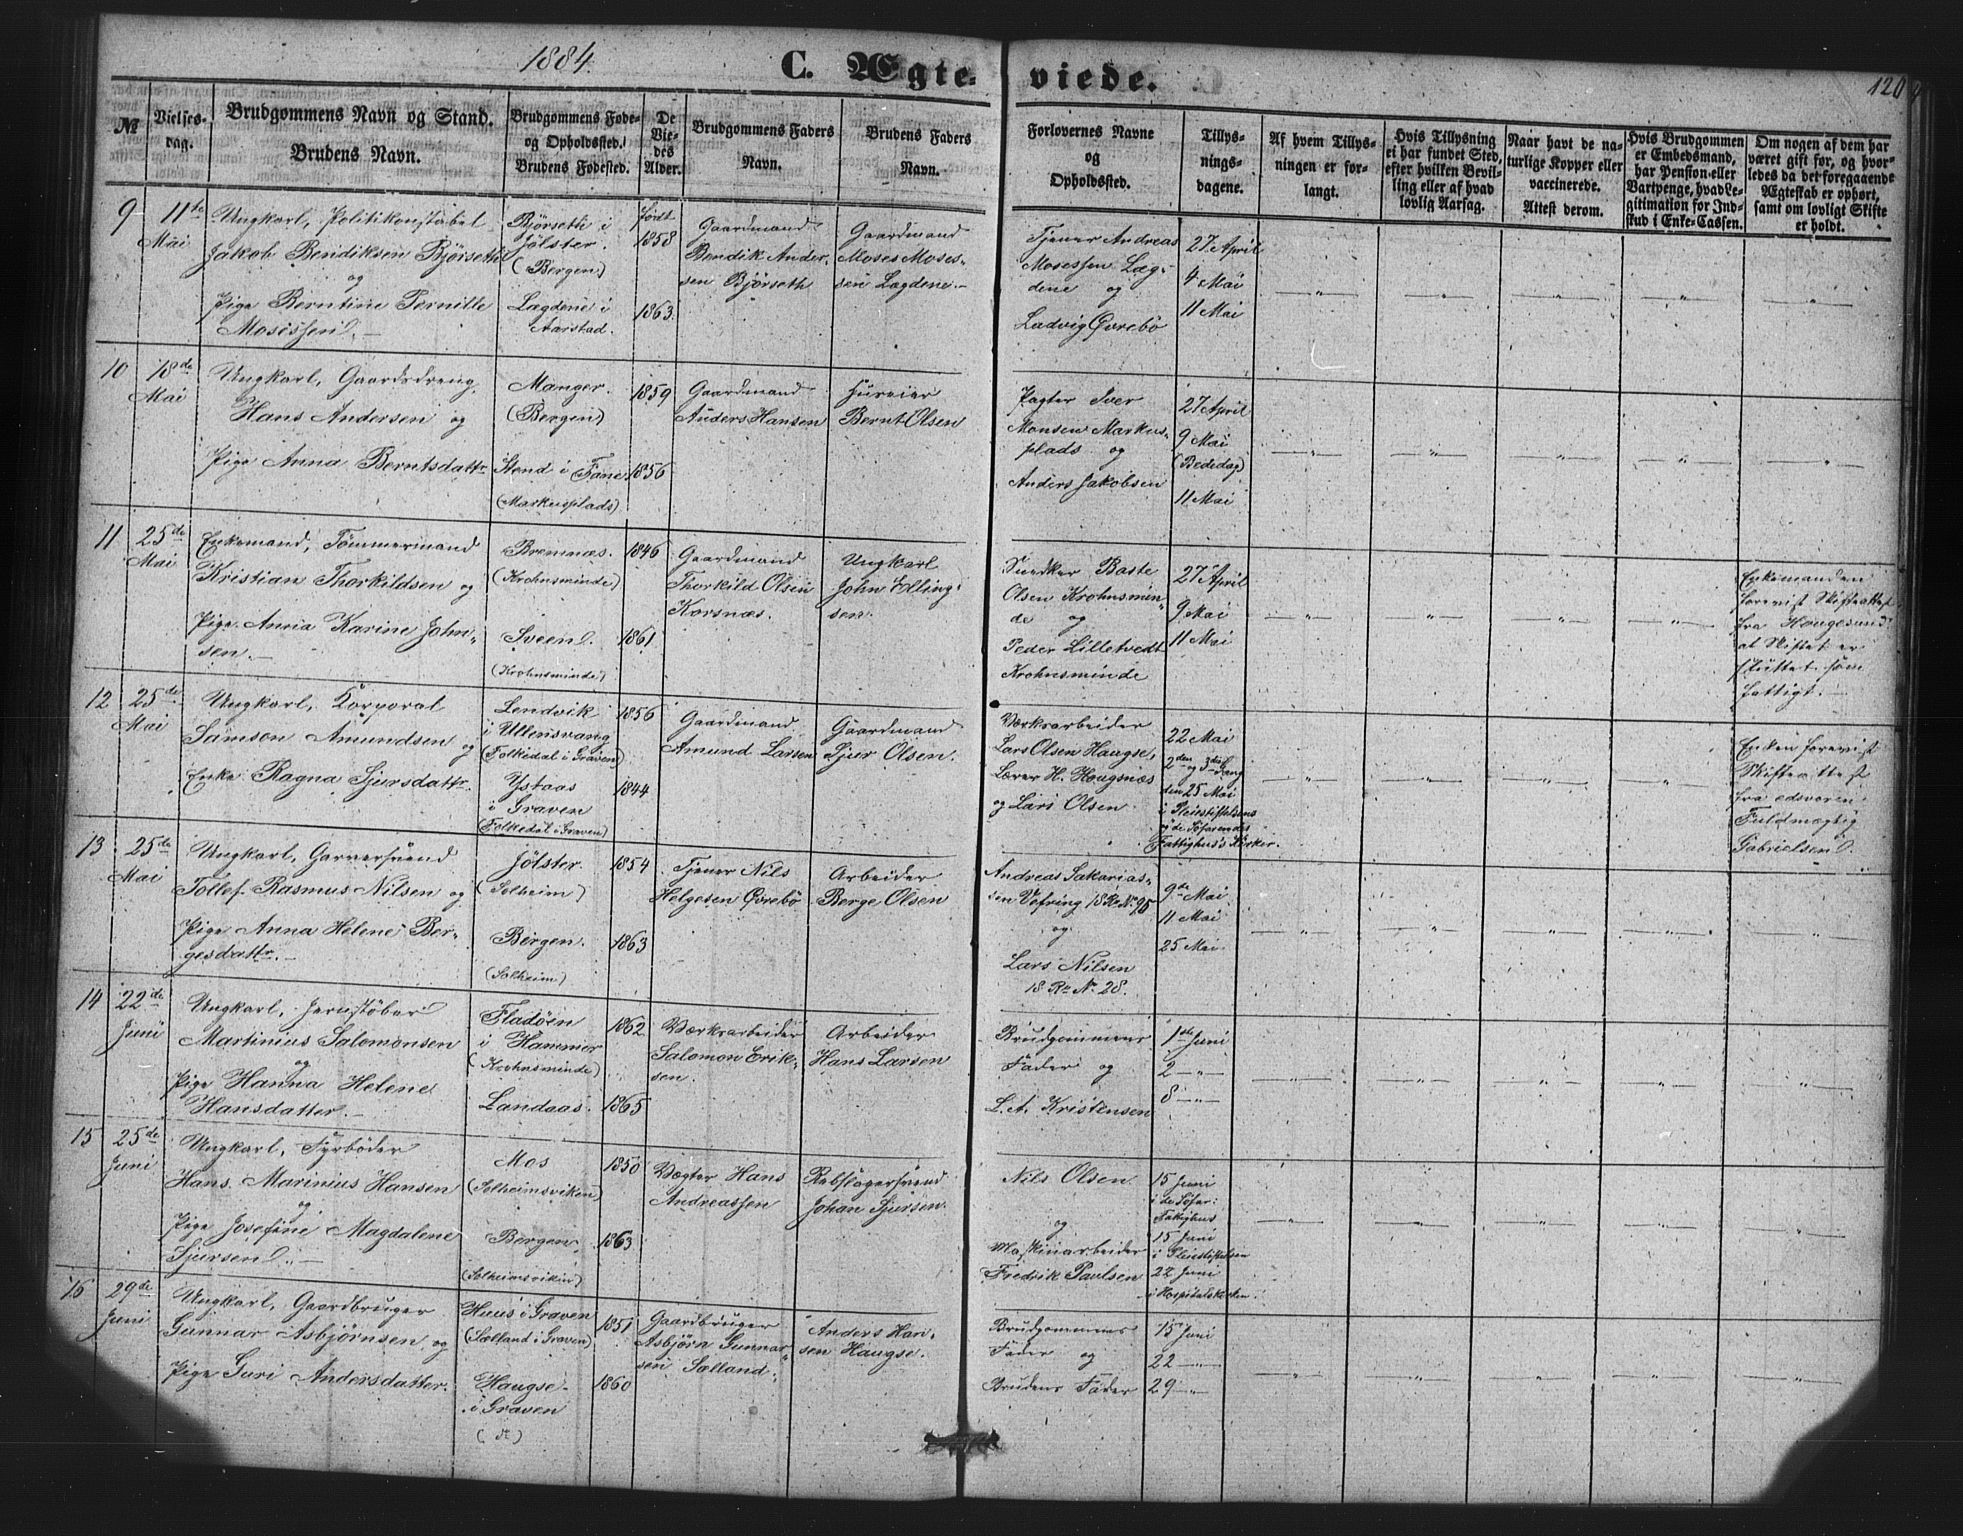 1884.
C. Ægte-
viede.
120
№
Vielses-
dag.
Brudgommens Navn og Stand.
Brudens Navn.
Brudgommens Føde-
og Opholdssted.
Brudens Fødested.
De
Vie-
des
Alder.
Brudgommens Faders
Navn.
Brudens Faders
Navn.
Forlovernes Navne
og
Opholdssted.
Tillys-
nings-
dagene.
Af hvem Tillys-
ningen er for-
langt.
Hvis Tillysning
ei har fundet Sted,
efter hvilken Bevil-
ling eller af hvad
lovlig Aarsag.
Naar havt de na-
turlige Kopper eller
vaccinerede.
Attest derom.
Hvis Brudgommen
er Embedsmand,
har Pension eller
Vartpenge, hvad Le-
gitimation for Ind-
skud i Enke-Cassen.
Om nogen af dem har
været gift før, og hvor-
ledes da det foregaaende
Ægteskab er ophørt,
samt om lovligt Skifte
er holdt.
9
11te
Mai
Ungkarl, Politikonstabel
Jakob Bendiksen Bjørseth
og
Pige Berntine Pernille
Mosessen.
Bjørseth i
Jølster.
(Bergen)
Lægdene i
Aarstad.
født
1858
1863.
Gaardmand
Bendik Ander-
sen Bjørseth
Gaardmand
Moses Moses-
sen Lægdene.
Tjener Andreas
Mosessen Læg-
dene og
Ludvig Øvrebö
27 April
4 Mai
11 Mai
10
18de
Mai
Ungkarl, Gaardsdreng
Hans Andersen og
Pige Anna Berntsdattr
Manger.
(Bergen)
Stend i Fane
(Markusplads)
1859
1856
Gaardmand
Anders Hansen
Bernt Olsen
Pagter Iver
Monsen Markus-
plads og
Anders Jakobsen
27 April
9 Mai
(Bededag)
11 Mai
11
25de
Mai
Enkemand, Tömmermand
Kristian Thorkildsen og
Pige Anna Karine John-
sen.
Bremnæs.
(Krohnsminde)
Sveen.
(Krohnsminde)
1846
1861
Gaardmand
Thorkild Olsen
Korsnæs.
Ungkarl
John Elling-
sen.
Snedker Baste
Olsen Krohnsmin-
de og
Peder Lilletvedt
Krohnsminde
27 April
9 Mai
11 Mai
Enkemanden
forevist Skifteattest
fra Hougesund
at Skiftet er
sluttet som
fattigt.
12
25de
Mai
Ungkarl, Korporal
Samson Amundsen og
Enke Ragna Sjursdattr
Lendvik
i Ullensvang
(Folkedal i Graven)
Ystaas
i Graven
(Folkedal i Graven)
1856
1844
Gaardmand
Amund Larsen
Gaardmand
Sjur Olsen.
Værksarbeider
Lars Olsen Haugse,
Lærer H. Hougsnæs
og Lars Olsen
22 Mai
2den og 3die Gang
den 25 Mai
i Pleiestiftelsens
og de Söfarendes
Fattighus's Kirker.
Enken forevist
Skifteattest
fra edsvoren
Fuldmægtig
Gabrielsen.
13
25de
Mai
Ungkarl, Garversvend
Tollef Rasmus Nilsen og
Pige Anna Helene Ber-
gesdattr.
Jölster.
(Solheim)
Bergen.
(Solheim)
1854
1863
Tjener Nils
Helgesen Øvrebö
Arbeider
Berge Olsen
Andreas Sakarias-
sen Vefring 18 R. No 95
og
Lars Nilsen
18 R. No 28.
9de Mai
11 Mai
25 Mai
14
22de
Juni
Ungkarl, Jernstöber
Martinius Salomonsen
og
Pige Hanna Helene
Hansdatter.
Fladöen
i Hammer
(Krohnsminde)
Landaas.
1862
1865
Værksarbeider
Salomon Erik-
sen.
Arbeider
Hans Larsen
Brudgommens
Fader og
L. A. Kristensen
1de Juni
2 —"—
8 —"—
15
25de
Juni
Ungkarl, Fyrböder
Hans Marinius Hansen
og
Pige Josefine Magdalene
Sjursen.
Mos
(Solheimsviken)
Bergen,
(Solheimsviken)
1850
1863
Vægter Hans
Andreassen
Rebslagersvend
Johan Sjursen.
Nils Olsen
og
Maskinarbeider
Fredrik Paulsen
15 Juni
i de Söfar:
Fattighus
15 Juni
i Pleiestiftelsen
22 Juni
i Hospitalskirken.
16
29de
Juni
Ungkarl, Gaardbruger
Gunnar Asbjørnsen og
Pige Guri Andersdatter.
Huus i Graven
(Sælland i Graven)
Haugse
i Graven
(dt)
1851
1860
Gaardbruger
Asbjørn Gunnar-
sen Sælland.
Anders Han-
sen Haugse.
Brudgommens
Fader og
Brudens Fader
15 Juni
22 —"—
29 —"—